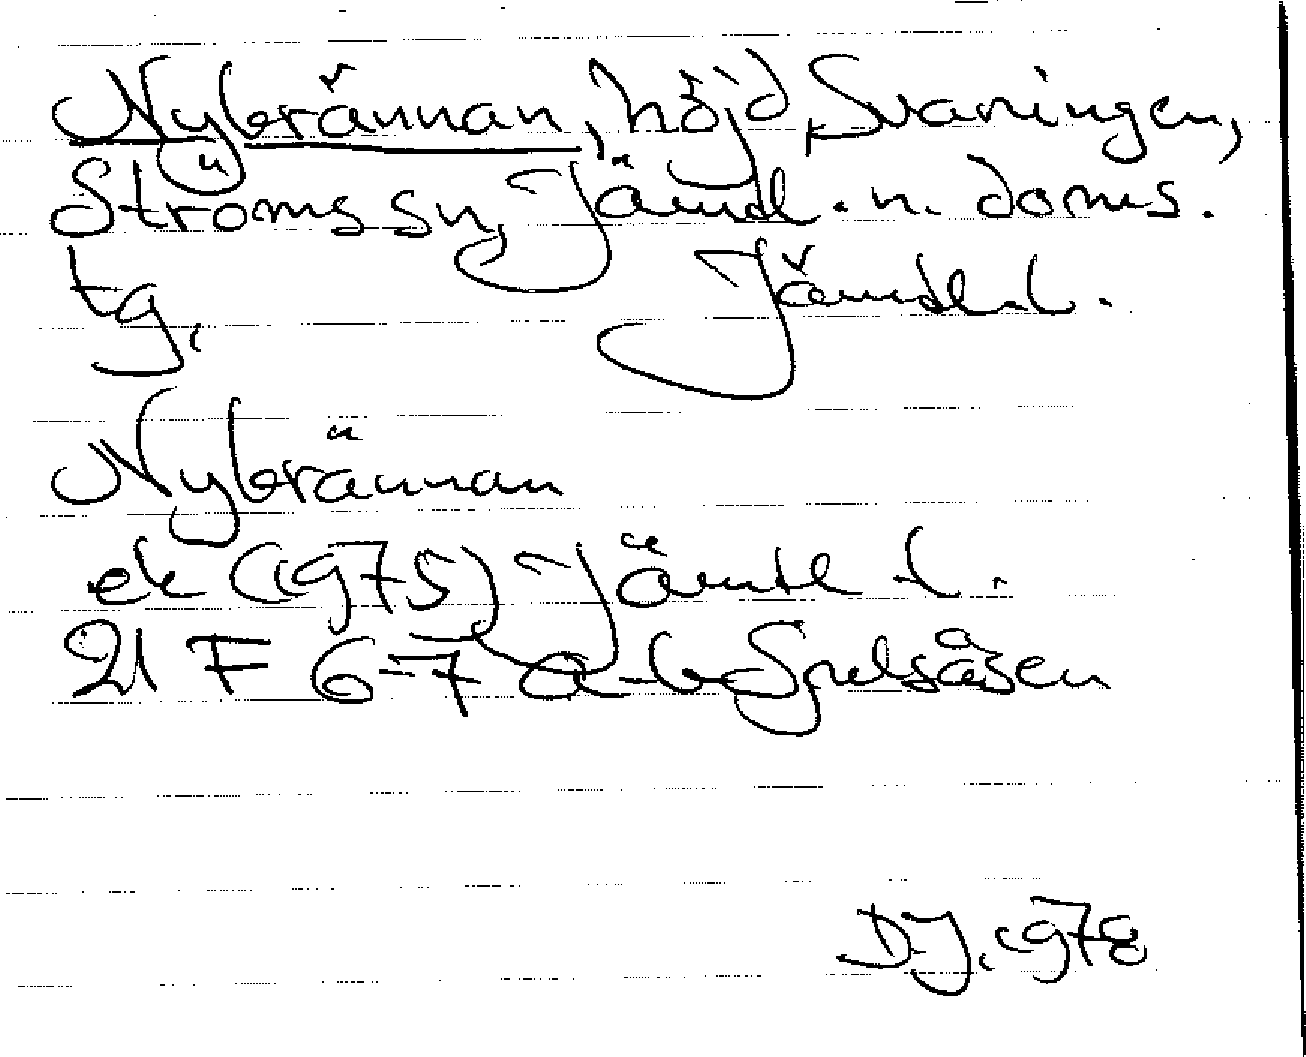 Nybrännan, höjd, Svaningen,
Ströms sn, Jämtl. n. doms.
tg.
Jämtl. l.
Nybrännan
ek (1975) Jämtl l.
21 F 6-7 a-b Spelsåsen
D.J. 1978